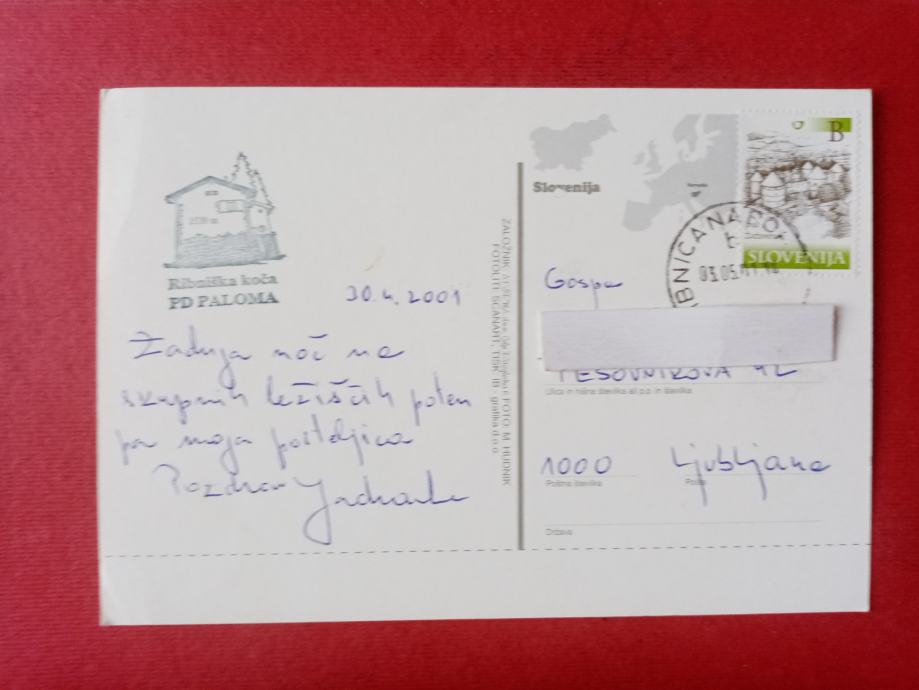 Ribniška koča
PD PALOMA
30.4.2001
Zadnja noč na
skupnih ležiščih potem
pa moja posteljica
Pozdrav
ZALOŽNIK: d.o.o. FOTO: M. HUDNIK
FOTOLITI: SCANART, TISK: IB - grafika d.o.o.
Slovenija
B
SLOVENIJA
03.05.01
Gospa
42
Ulica in hišna številka ali p.p. in številka
1000 Ljubljana
Poštna številka Pošta
Država